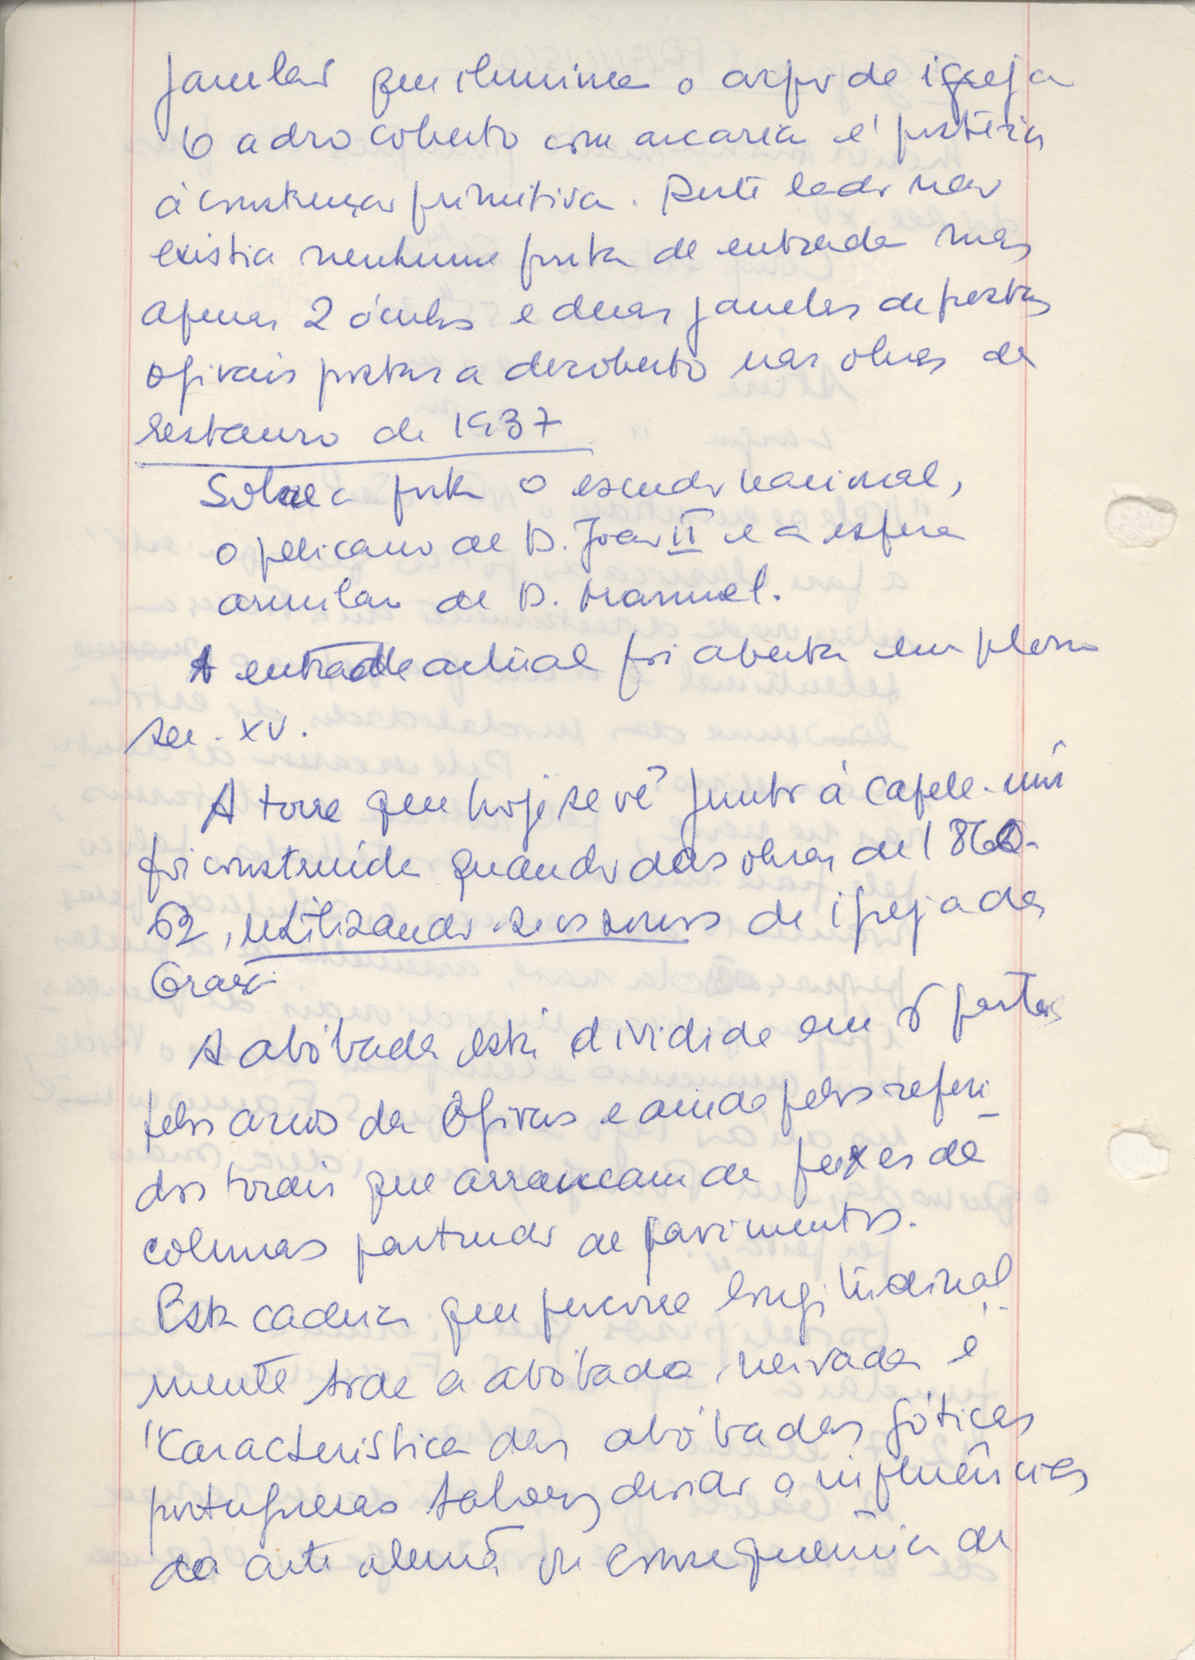 janelas que ilumina o corpo da igreja
O adro coberto com arcaria é posterior
à construção primitiva. Deste lado não
existia nenhuma porta de entrada mas
apenas 2 óculos e duas janelas de frestas
ogivais postas a descoberto nas obras de
restauro de 1937
Sobre a porta o escudo nacional,
o pelicano de D. João II e a esfera
armilar de D. Manuel.
A entrada actual foi aberta em pleno
séc. XV.
A torre que hoje se vê junto à capela-mór
foi construida quando das obras de 1860-
62, utilizando-se os sinos da igreja da
Graça
A abóbada está dividida em 8 partes
pelos arcos da Ogivas e ainda pelos referi-
dos torais que arrancam de feixes de
colunas partindo de pavimentos.
Esta cadeia que percorre longitudinal-
mente toda a abóbada nervada é
"Característica das abóbadas góticas
portuguesas talvez devido a influências
da arte alemã em consequência de